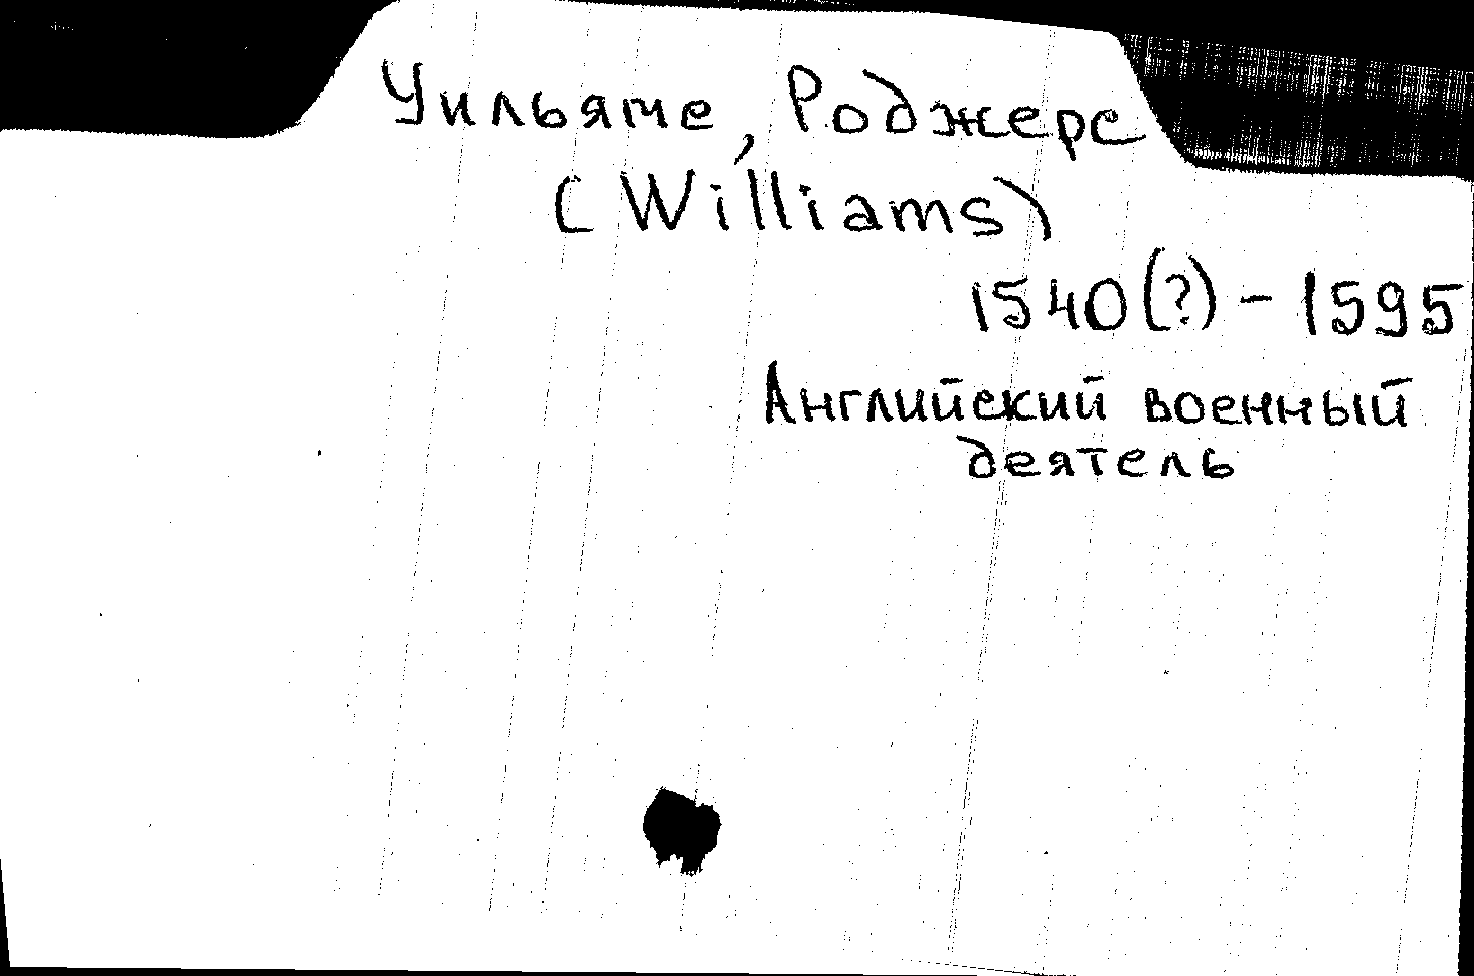 Уильямс, Роджерс
(Williams)
1540(?) - 1595
Английский военный
деятель